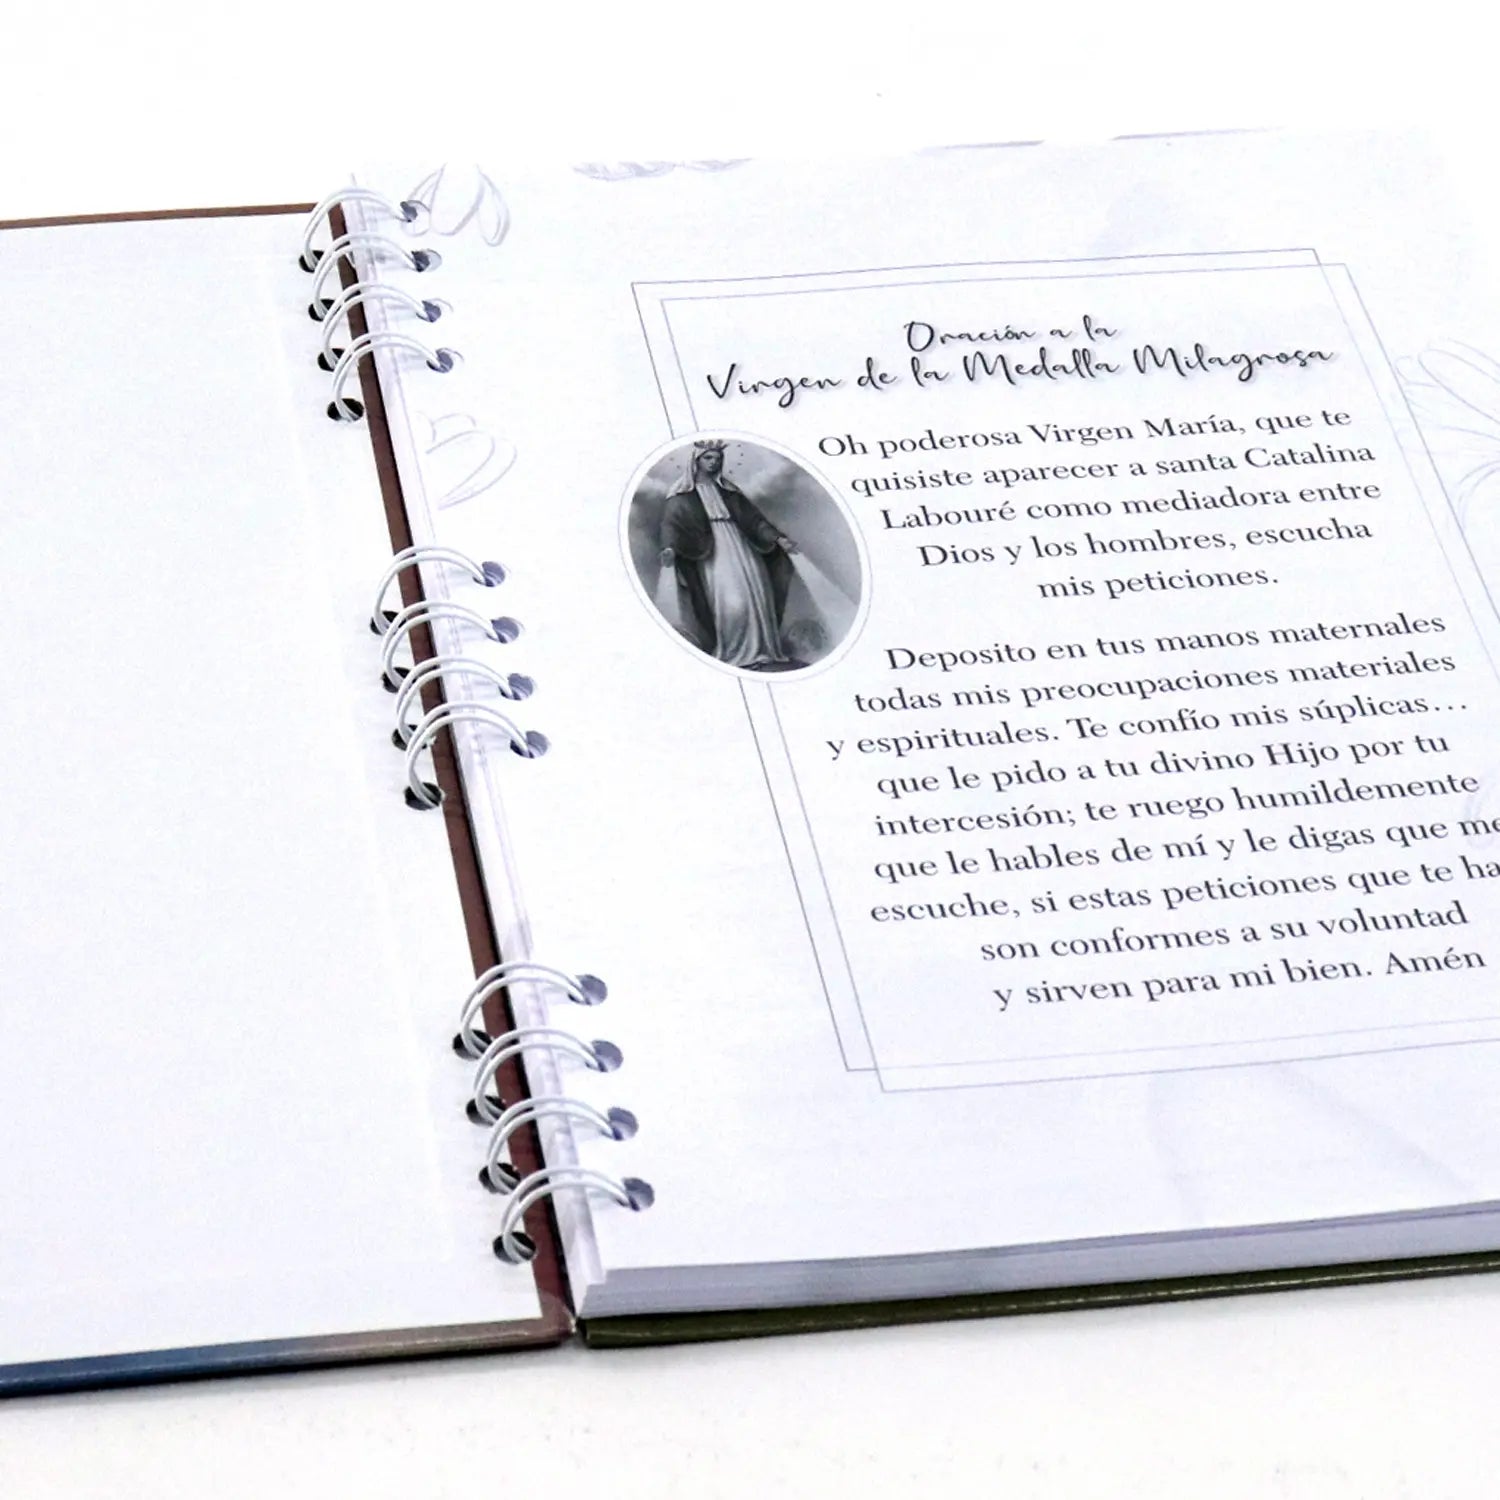 Oración a la
Virgen de la Medalla Milagrosa
Oh poderosa Virgen María, que te
quisiste aparecer a santa Catalina
Labouré como mediadora entre
Dios y los hombres, escucha
mis peticiones.
Deposito en tus manos maternales
todas mis preocupaciones materiales
y espirituales. Te confío mis súplicas...
que le pido a tu divino Hijo por tu
intercesión; te ruego humildemente
que le hables de mí y le digas que me
escuche, si estas peticiones que te
son conformes a su voluntad
y sirven para mi bien. Amén